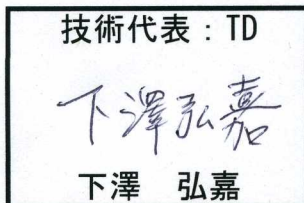 技術代表:TD
下澤弘嘉
下澤 弘嘉